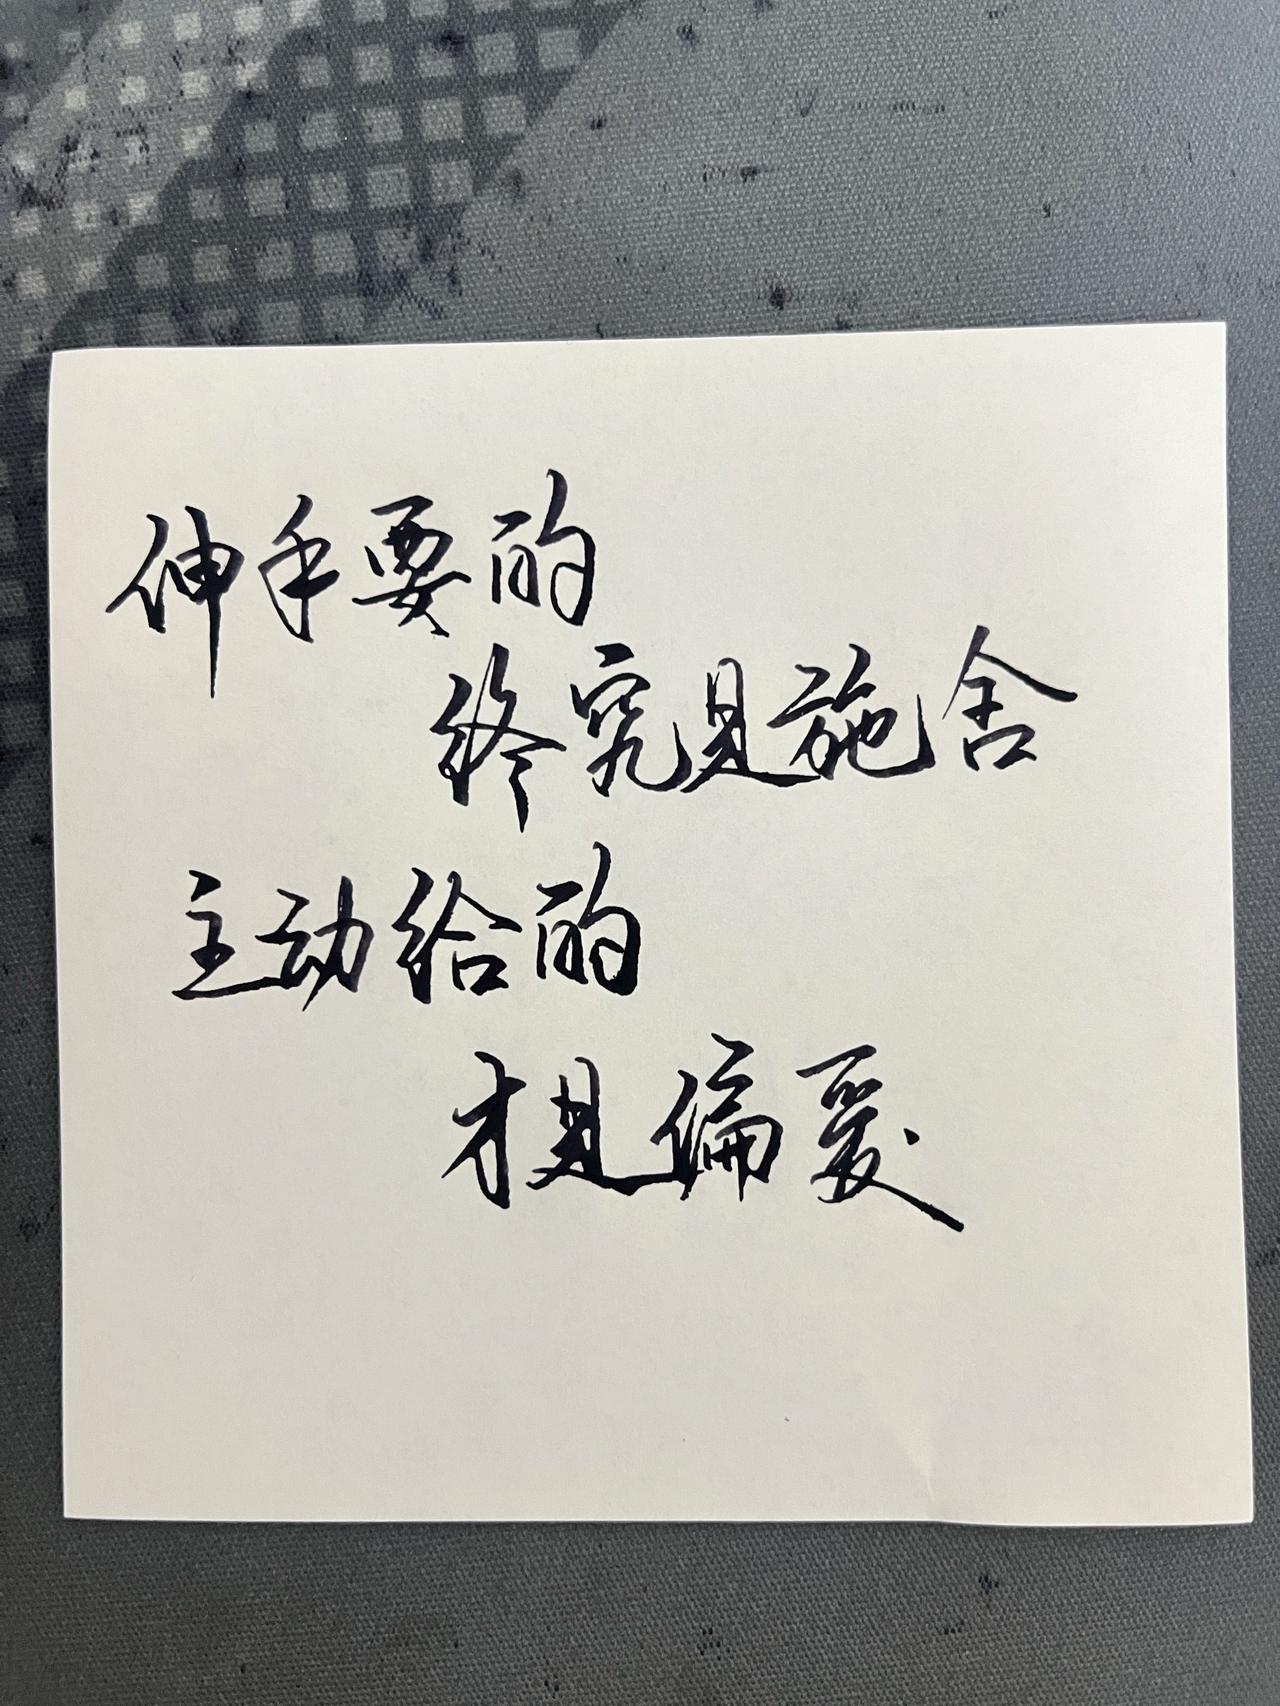 伸手要的
终究是施舍
主动给的
才是偏爱